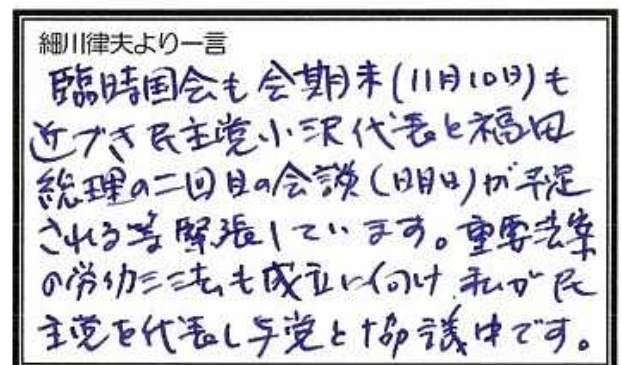 細川律夫より一言
臨時国会も会期末(11月10日)も
近づき民主党小沢代表と福田
総理の二回目の会談(明日)が予定
される等緊張しています。重要法案
の労働三法も成立に向け私が民
主党を代表し与党と協議中です。